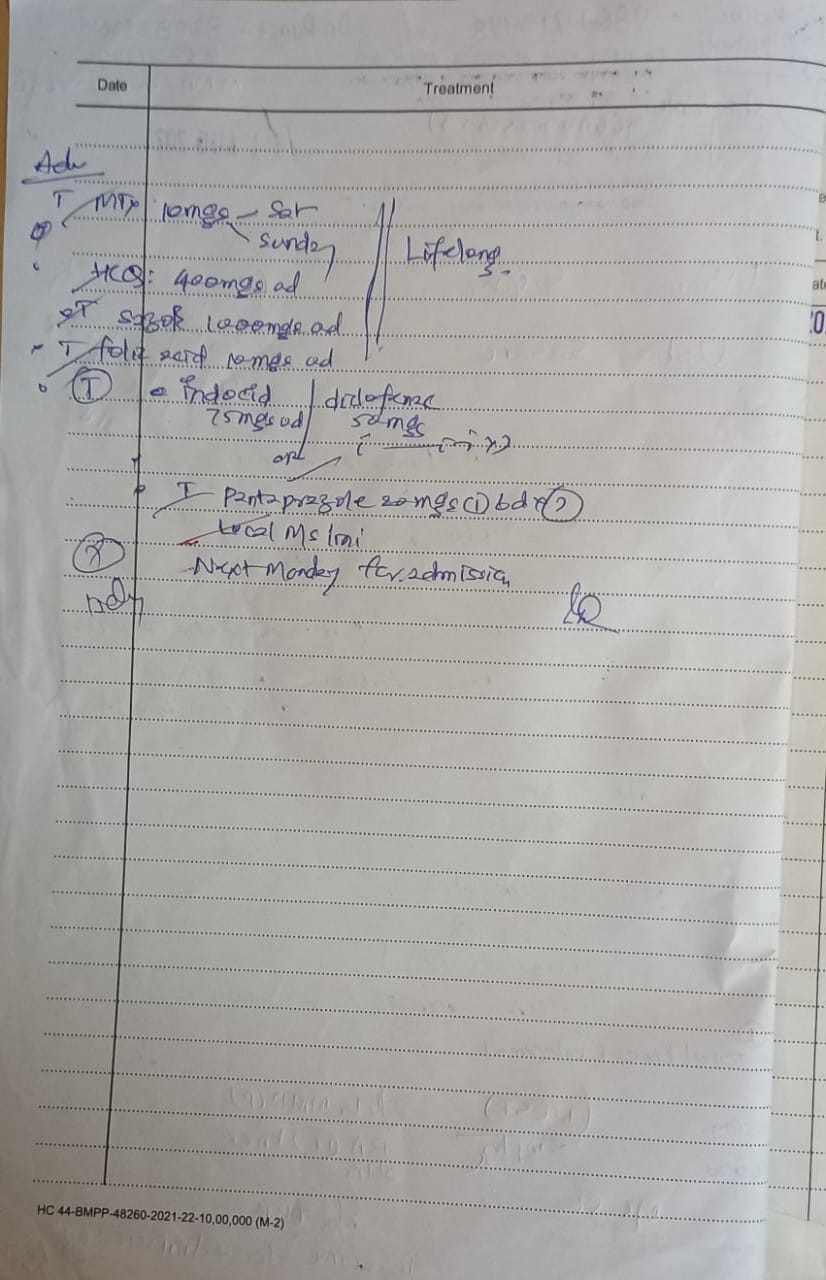 Date Treatment
Adv
T MTX 10mgs – Sat
Sunday
Lifelong.
HCQ: 400mgs od
T 1000mgs od
T folic acid 10mgs od
Indocid / diclofenac
75mgs od 50mgs
T Pantaprazole 20mgs (1) bd x
Local Ms
Next Monday for admission
HC 44-BMPP-48260-2021-22-10,00,000 (M-2)